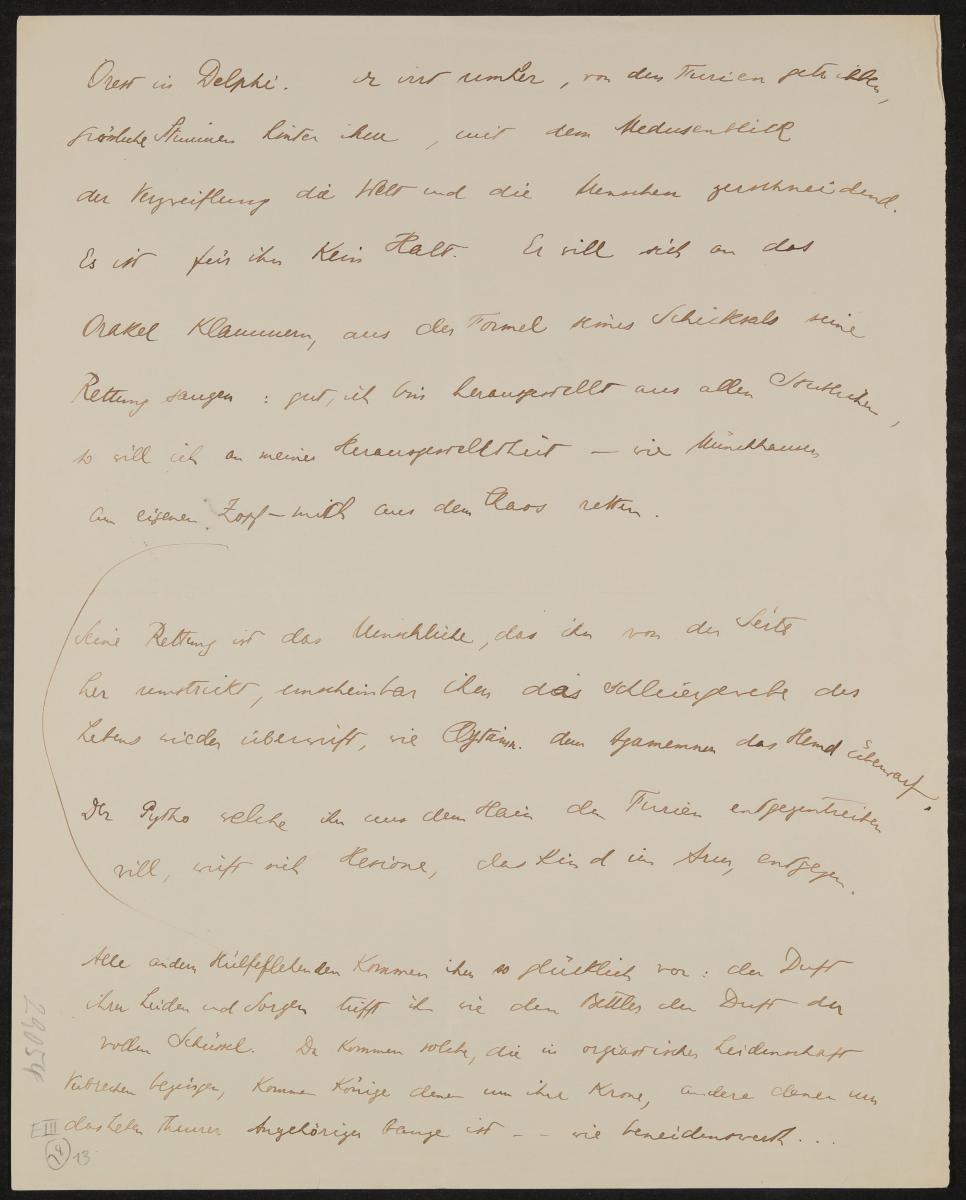 Orest in Delphi. Er irrt umher, von den Furien getrieben,
grässliche Stimmen hinter ihm, mit dem Medusenblick
der Verzweiflung die Welt und die Menschen zerschneidend.
Es ist für ihn kein Halt. Er will sich an das
Orakel klammern, aus der Formel seines Schicksals seine
Rettung saugen: gut, ich bin herausgestellt aus allen Sterblichen,
so will ich an meiner Herausgestelltheit – wie Münchhausen
am eigenen Zopf – mich aus dem Chaos retten.
Seine Rettung ist das Menschliche, das ihn von der Seite
her umstrickt, unscheinbar ihm das Schleiergewebe des
Lebens wieder überwirft, wie Clytämn. dem Agamemnon das Hemd überwarf.
Der Pytho welche ihn aus dem Hain den Furien entgegentreiben
will, wirft sich Hesione, das Kind im Arm, entgegen.
Alle andern Hülfeflehenden kommen ihm so glücklich vor: der Duft
ihrer Leiden und Sorgen trifft ihn wie den Bettler der Duft der
vollen Schüssel. Da kommen solche, die in orgiastischer Leidenschaft
Verbrechen begingen, kommen Könige denen um ihre Krone, andere denen um
das Leben theurer Angehöriger bange ist – – wie beneidenswerth...
29054
E III
24
13